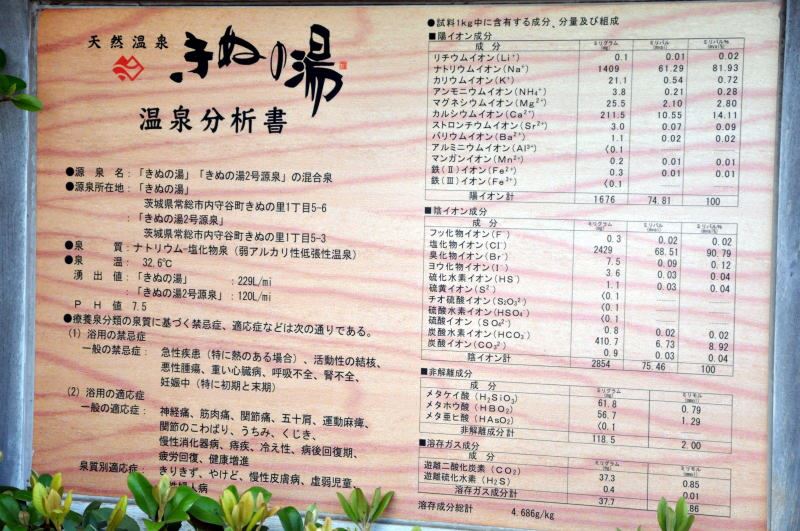 天然温泉
きぬの湯
温泉分析書
●源泉名：「きぬの湯」「きぬの湯2号源泉」の混合泉
●源泉所在地：「きぬの湯」
茨城県常総市内守谷町きぬの里1丁目5-6
：「きぬの湯2号源泉」
茨城県常総市内守谷町きぬの里1丁目5-3
●泉質：ナトリウム−塩化物泉（弱アルカリ性低張性温泉）
●泉温：32.6℃
湧出値：「きぬの湯」：229L/mi
：「きぬの湯2号源泉」：120L/mi
PH値 7.5
●療養泉分類の泉質に基づく禁忌症、適応症などは次の通りである。
(1) 浴用の禁忌症
一般の禁忌症：急性疾患（特に熱のある場合）、活動性の結核、
悪性腫瘍、重い心臓病、呼吸不全、腎不全、
妊娠中（特に初期と末期）
(2) 浴用の適応症
一般の適応症：神経痛、筋肉痛、関節痛、五十肩、運動麻痺、
関節のこわばり、うちみ、くじき、
慢性消化器病、痔疾、冷え性、病後回復期、
疲労回復、健康増進
泉質別適応症：きりきず、やけど、慢性皮膚病、虚弱児童、
婦人病
●試料1kg中に含有する成分、分量及び組成
■陽イオン成分
成分 ミリグラム (mg) ミリバル (mval) ミリバル% (mval%)
リチウムイオン(Li⁺) 0.1 0.01 0.02
ナトリウムイオン(Na⁺) 1409 61.29 81.93
カリウムイオン(K⁺) 21.1 0.54 0.72
アンモニウムイオン(NH₄⁺) 3.8 0.21 0.28
マグネシウムイオン(Mg²⁺) 25.5 2.10 2.80
カルシウムイオン(Ca²⁺) 211.5 10.55 14.11
ストロンチウムイオン(Sr²⁺) 3.0 0.07 0.09
バリウムイオン(Ba²⁺) 1.1 0.02 0.02
アルミニウムイオン(Al³⁺) <0.1
マンガンイオン(Mn²⁺) 0.2 0.01 0.01
鉄(Ⅱ)イオン(Fe²⁺) 0.3 0.01 0.01
鉄(Ⅲ)イオン(Fe³⁺) <0.1
陽イオン計 1676 74.81 100
■陰イオン成分
成分 ミリグラム (mg) ミリバル (mval) ミリバル% (mval%)
フッ化物イオン(F⁻) 0.3 0.02 0.02
塩化物イオン(Cl⁻) 2429 68.51 90.79
臭化物イオン(Br⁻) 7.5 0.09 0.12
ヨウ化物イオン(I⁻) 3.6 0.03 0.04
硫化水素イオン(HS⁻) 1.1 0.03 0.04
硫黄イオン(S²⁻) <0.1
チオ硫酸イオン(S₂O₃²⁻) <0.1
硫酸水素イオン(HSO₄⁻) <0.1
硫酸イオン(SO₄²⁻) 0.8 0.02 0.02
炭酸水素イオン(HCO₃⁻) 410.7 6.73 8.92
炭酸イオン(CO₃²⁻) 0.9 0.03 0.04
陰イオン計 2854 75.46 100
■非解離成分
成分 ミリグラム (mg) ミリモル
メタケイ酸(H₂SiO₃) 61.8 0.79
メタホウ酸(HBO₂) 56.7 1.29
メタ亜ヒ酸(HAsO₂) <0.1
非解離成分計 118.5 2.00
■溶存ガス成分
成分 ミリグラム (mg) ミリモル
遊離二酸化炭素(CO₂) 37.3 0.85
遊離硫化水素(H₂S) 0.4 0.01
溶存ガス成分計 37.7 .86
溶存成分総計 4.686g/kg